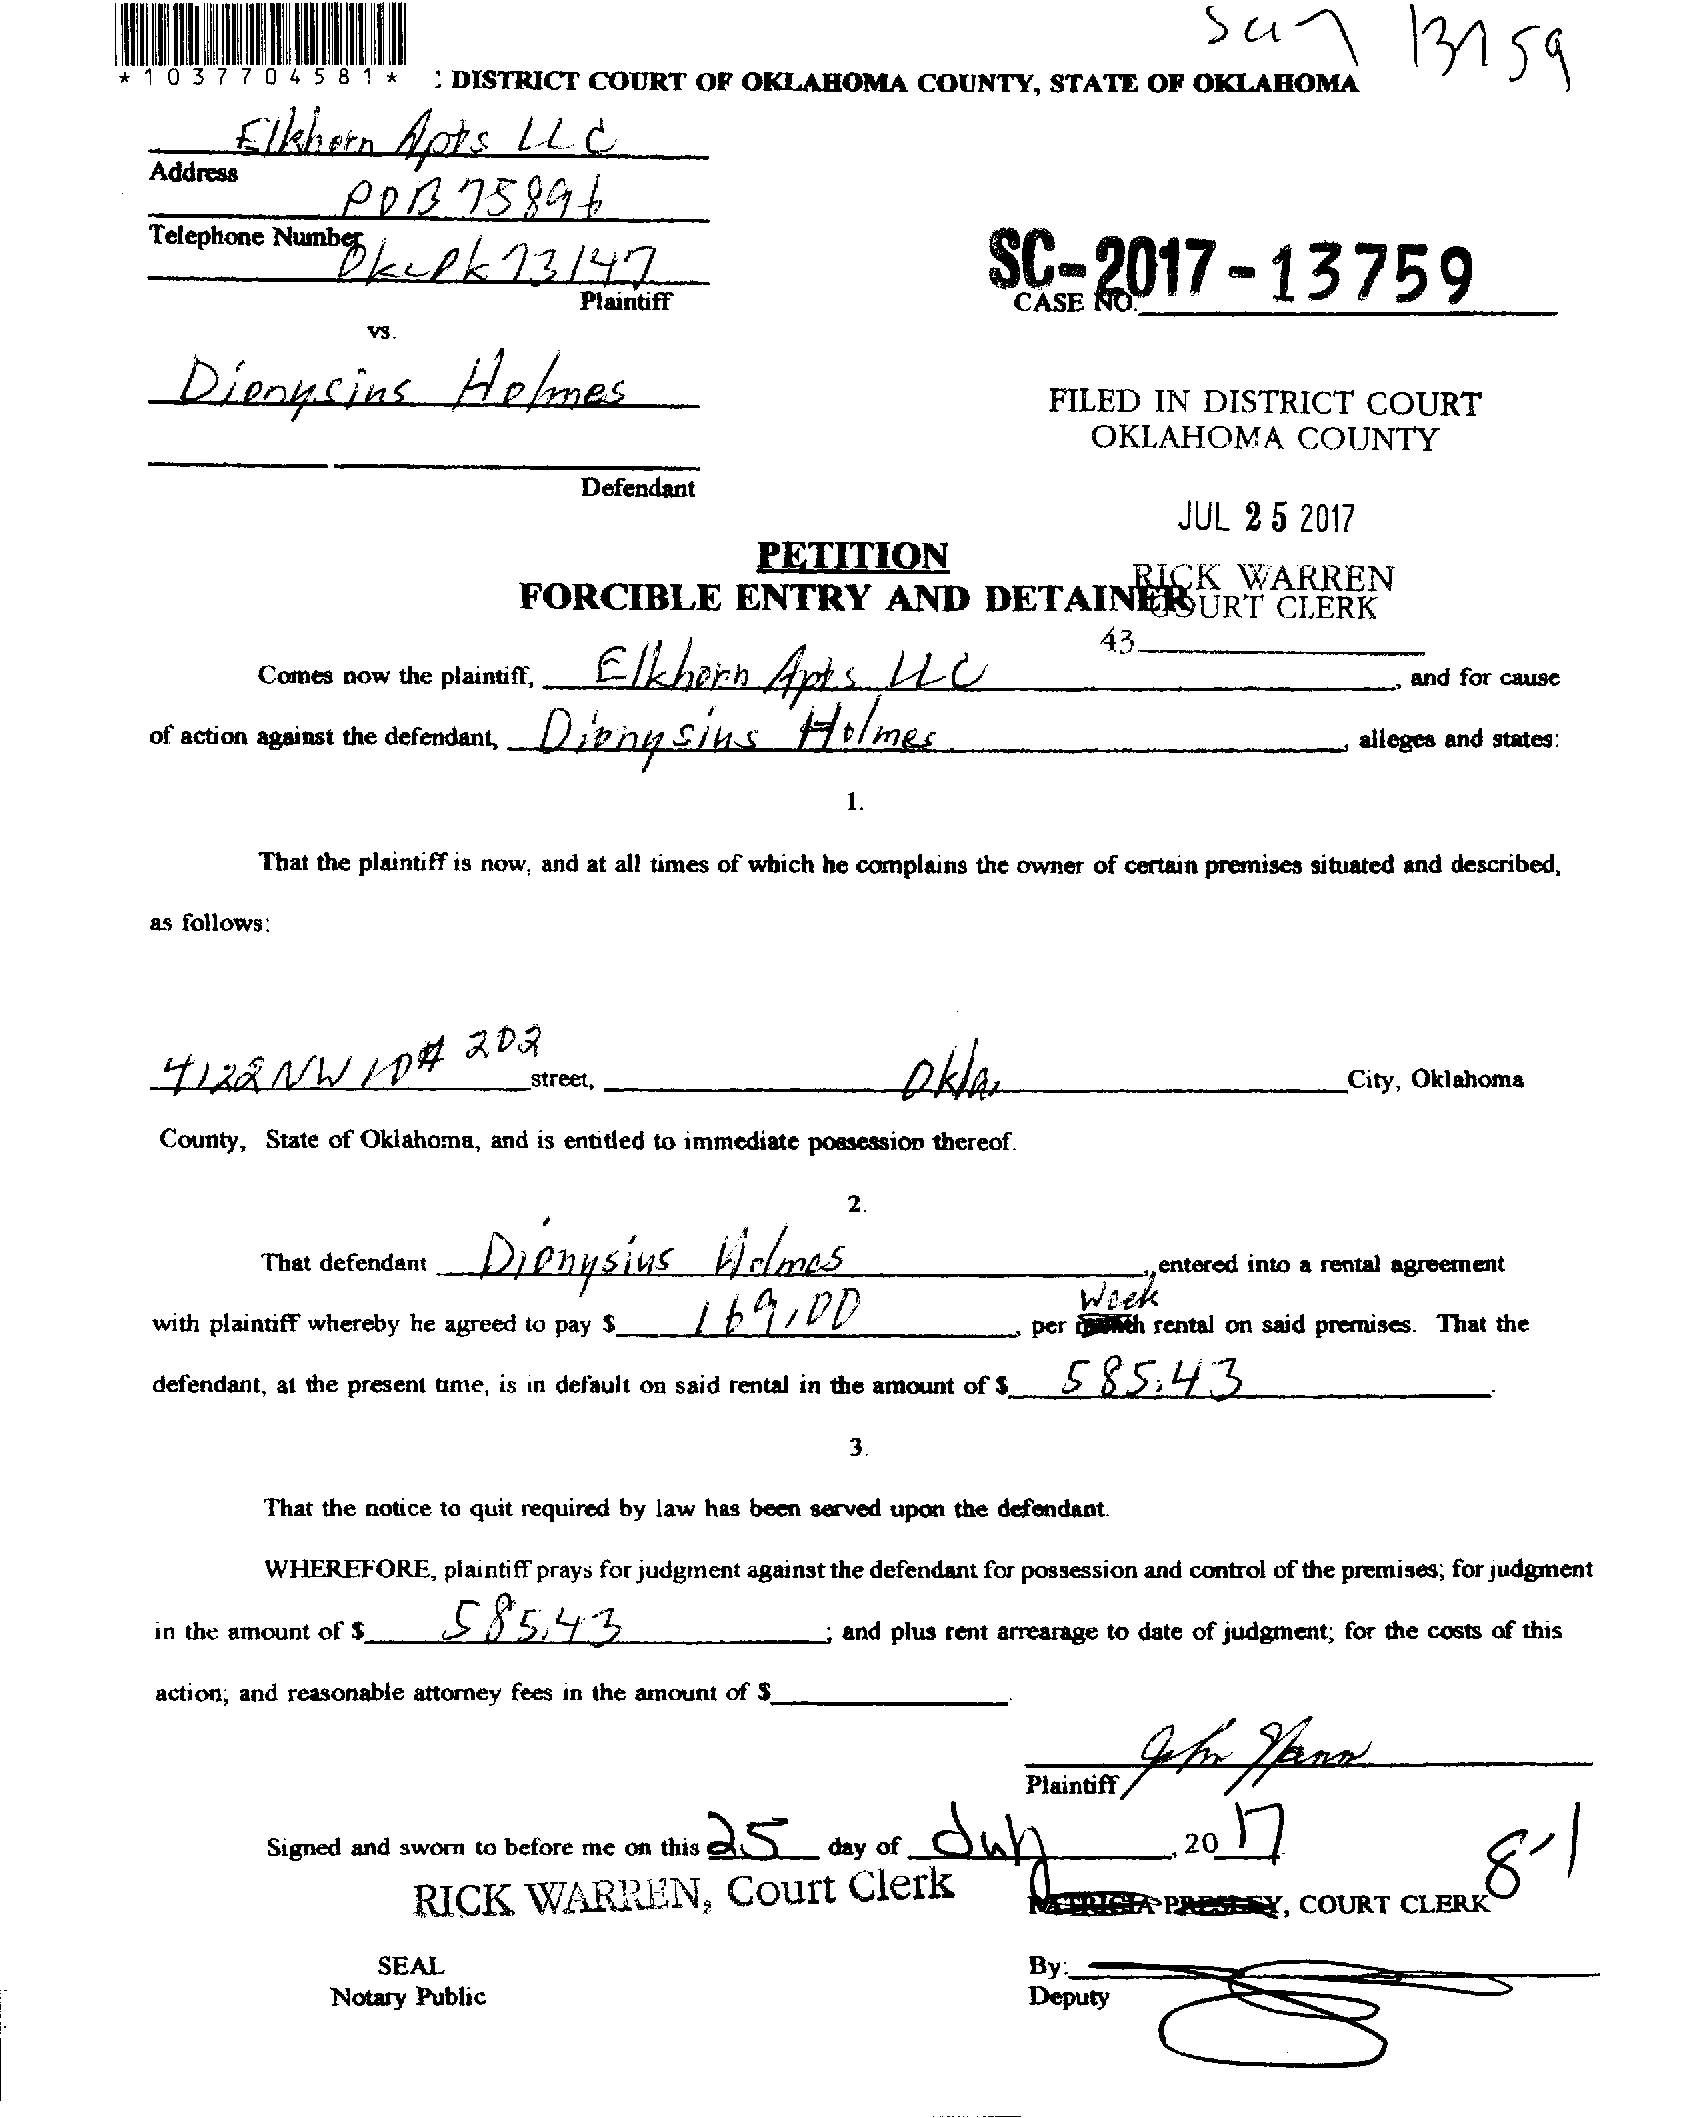 SC17 13759
*1037704581*
: DISTRICT COURT OF OKLAHOMA COUNTY, STATE OF OKLAHOMA
Elkhorn Apts LLC
Address
POB 75896
Telephone Number
Okc Ok 73147
Plaintiff
SC-2017-13759
CASE NO.
vs.
Dionysius Holmes
Defendant
FILED IN DISTRICT COURT
OKLAHOMA COUNTY
JUL 25 2017
RICK WARREN
COURT CLERK
43
PETITION
FORCIBLE ENTRY AND DETAINER
Comes now the plaintiff, Elkhorn Apts LLC, and for cause
of action against the defendant, Dionysius Holmes, alleges and states:
1.
That the plaintiff is now, and at all times of which he complains the owner of certain premises situated and described,
as follows:
4122 NW 10 # 202 street, Okla. City, Oklahoma
County, State of Oklahoma, and is entitled to immediate possession thereof.
2.
That defendant Dionysius Holmes, entered into a rental agreement
with plaintiff whereby he agreed to pay $ 169.00, per Week rental on said premises. That the
defendant, at the present time, is in default on said rental in the amount of $ 585.43.
3.
That the notice to quit required by law has been served upon the defendant.
WHEREFORE, plaintiff prays for judgment against the defendant for possession and control of the premises; for judgment
in the amount of $ 585.43; and plus rent arrearage to date of judgment; for the costs of this
action; and reasonable attorney fees in the amount of $
Plaintiff
Signed and sworn to before me on this 25 day of July, 20 17
8-1
RICK WARREN, Court Clerk
PATRICIA PRESLEY, COURT CLERK
SEAL
Notary Public
By:
Deputy